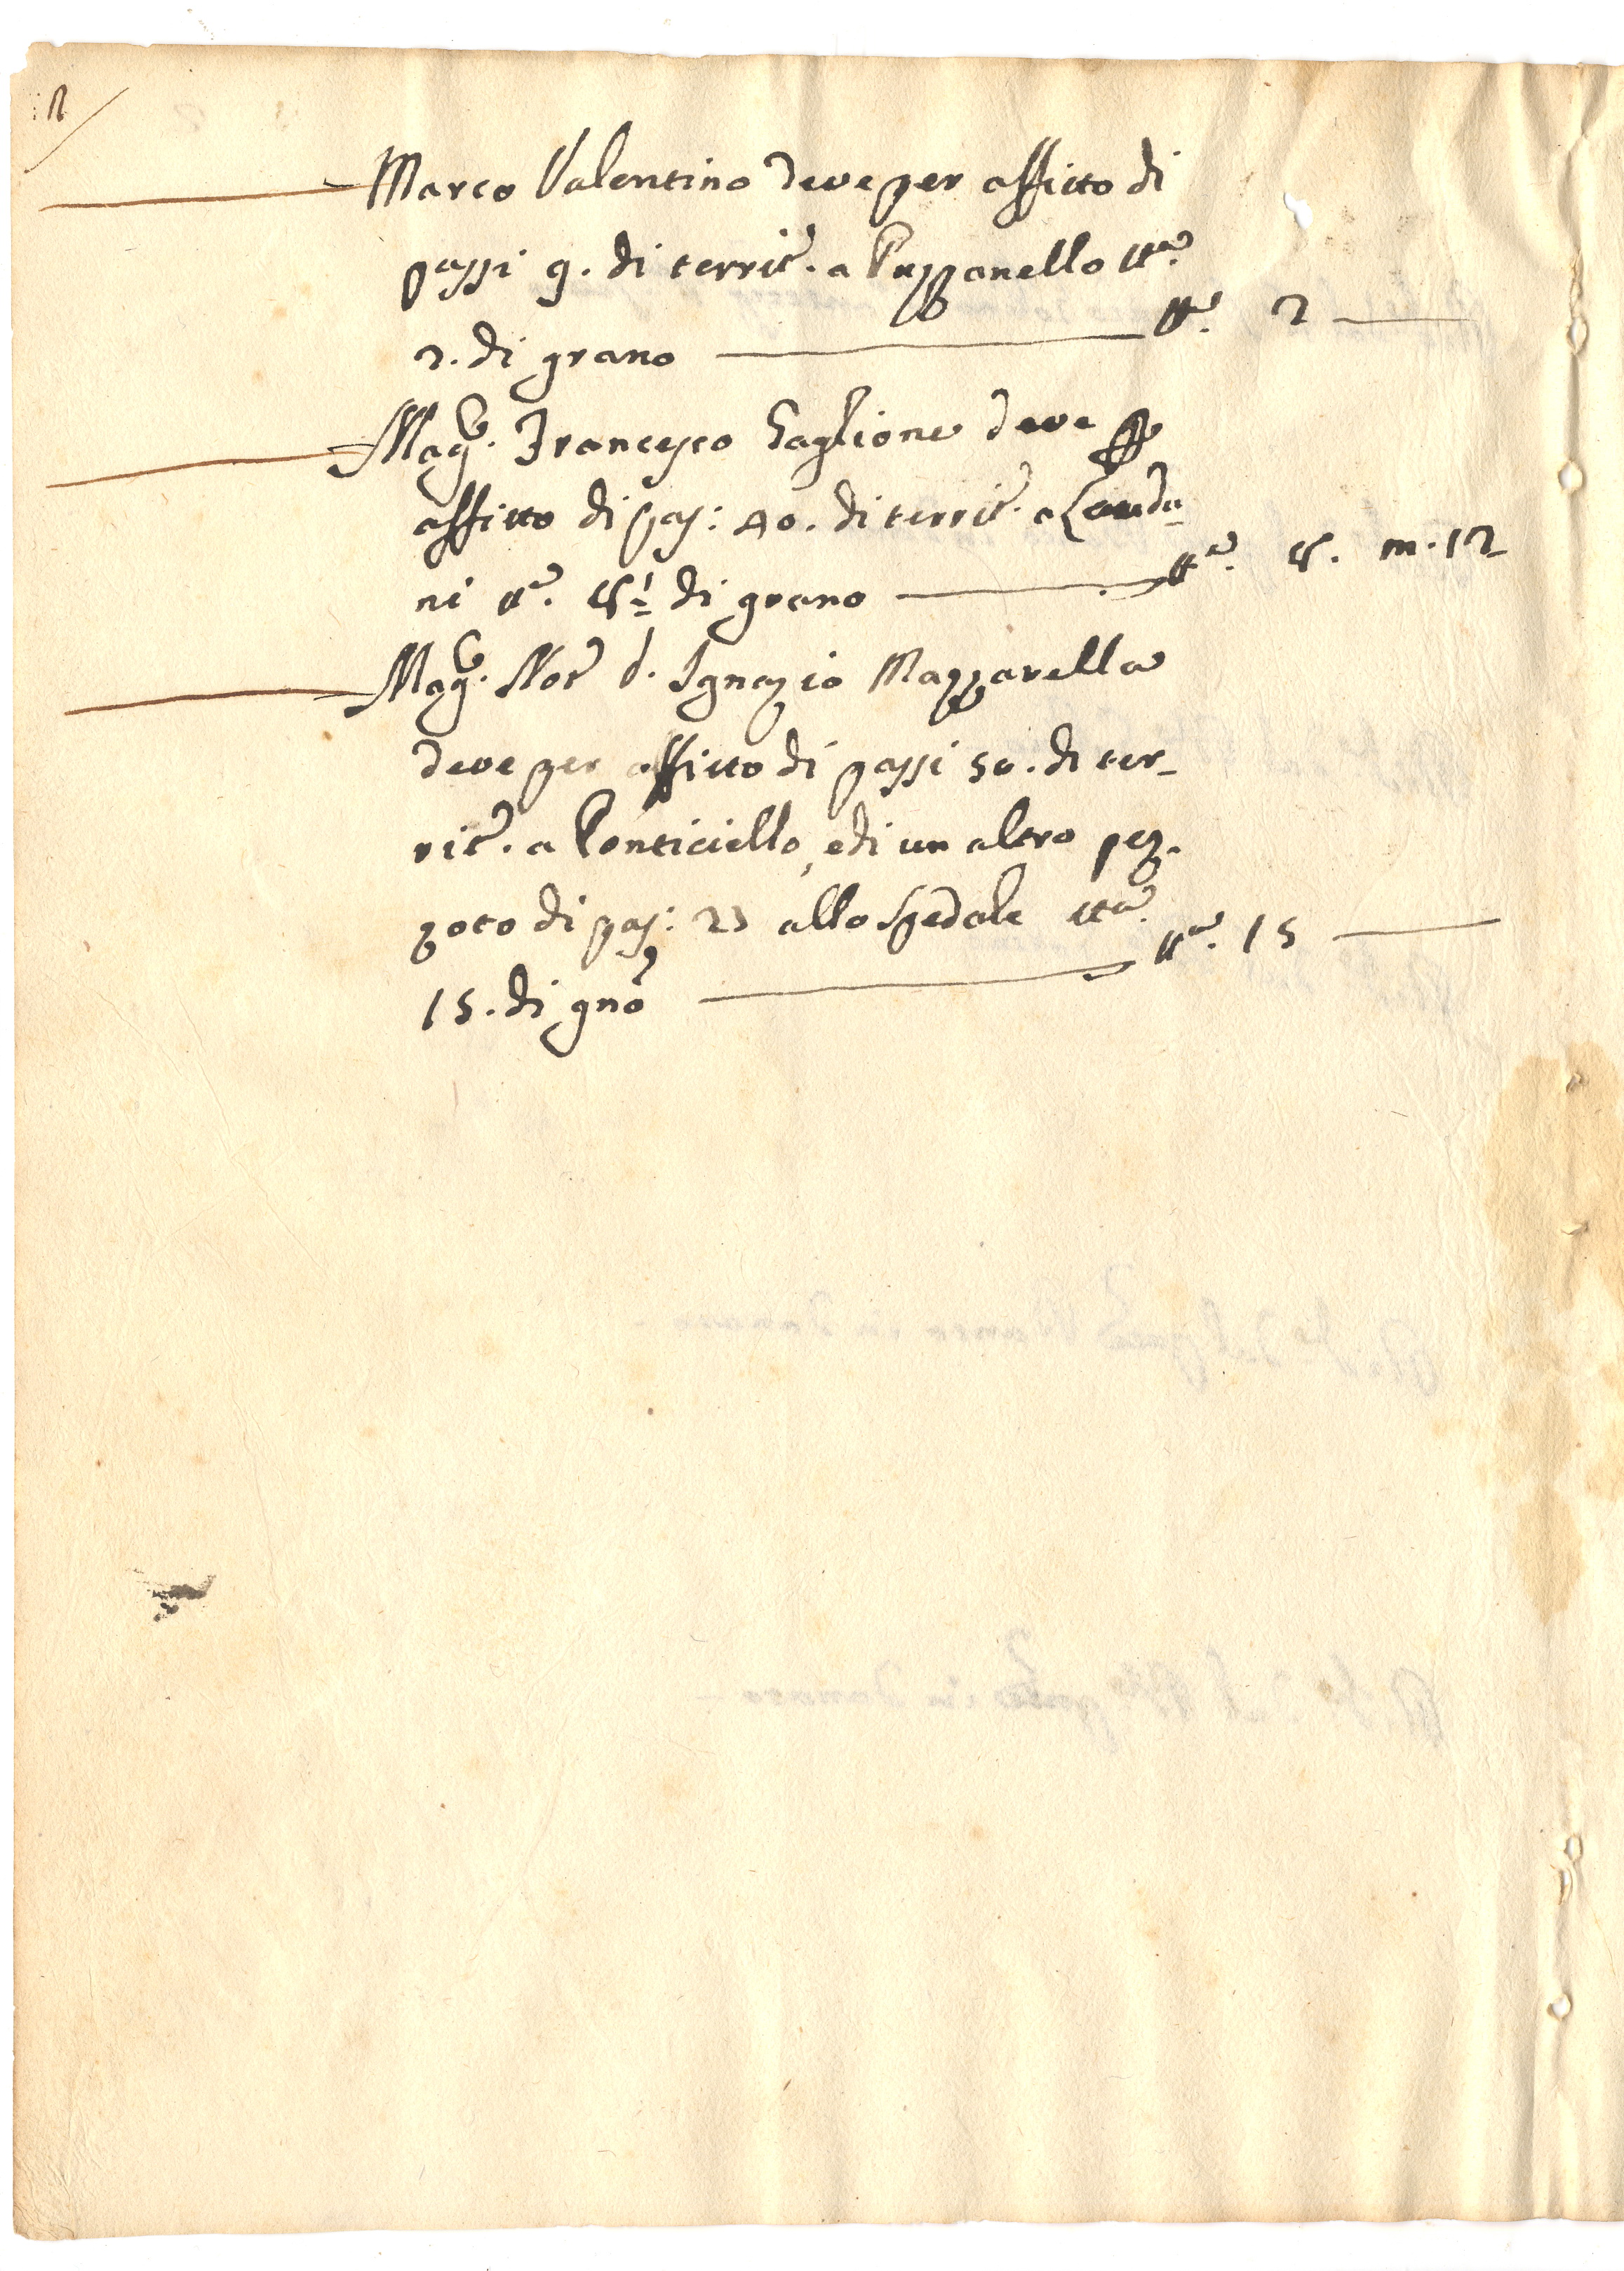 Marco Valentino deve per affitto di
passi 9. di territ. a Puzzanello tt.a
2. di grano tt.a 2
Mag.co Francesco Saglione deve
affitto di pas: 40. di territ. a Lauda-
ni tt.a di grano tt.a m. 12
Mag.co Not.r d. Ignazio Mazzarella
deve per affitto di passi 50. di ter-
rit. a Ponticiello, e di un altro pez-
zoto di pas: 23 allo Spedale tt.a
15. di gnò tt.a 15